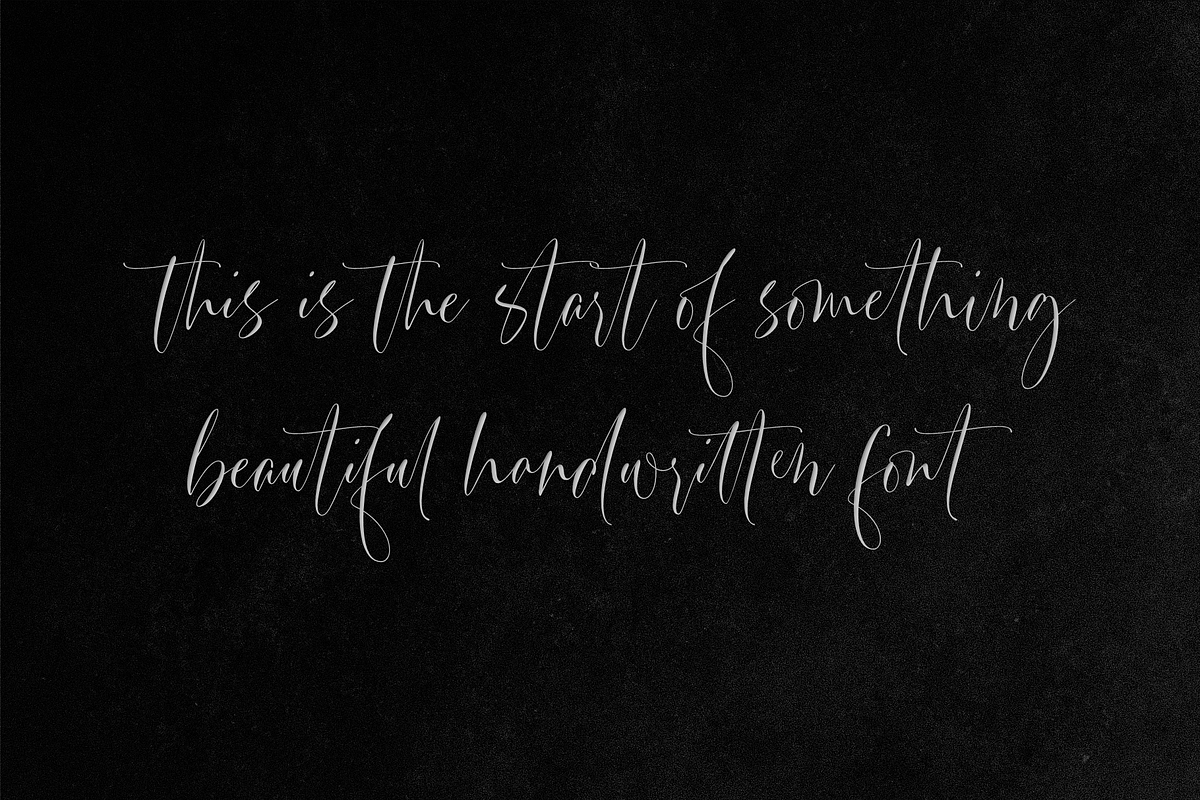 this is the start of something
beautiful handwritten font